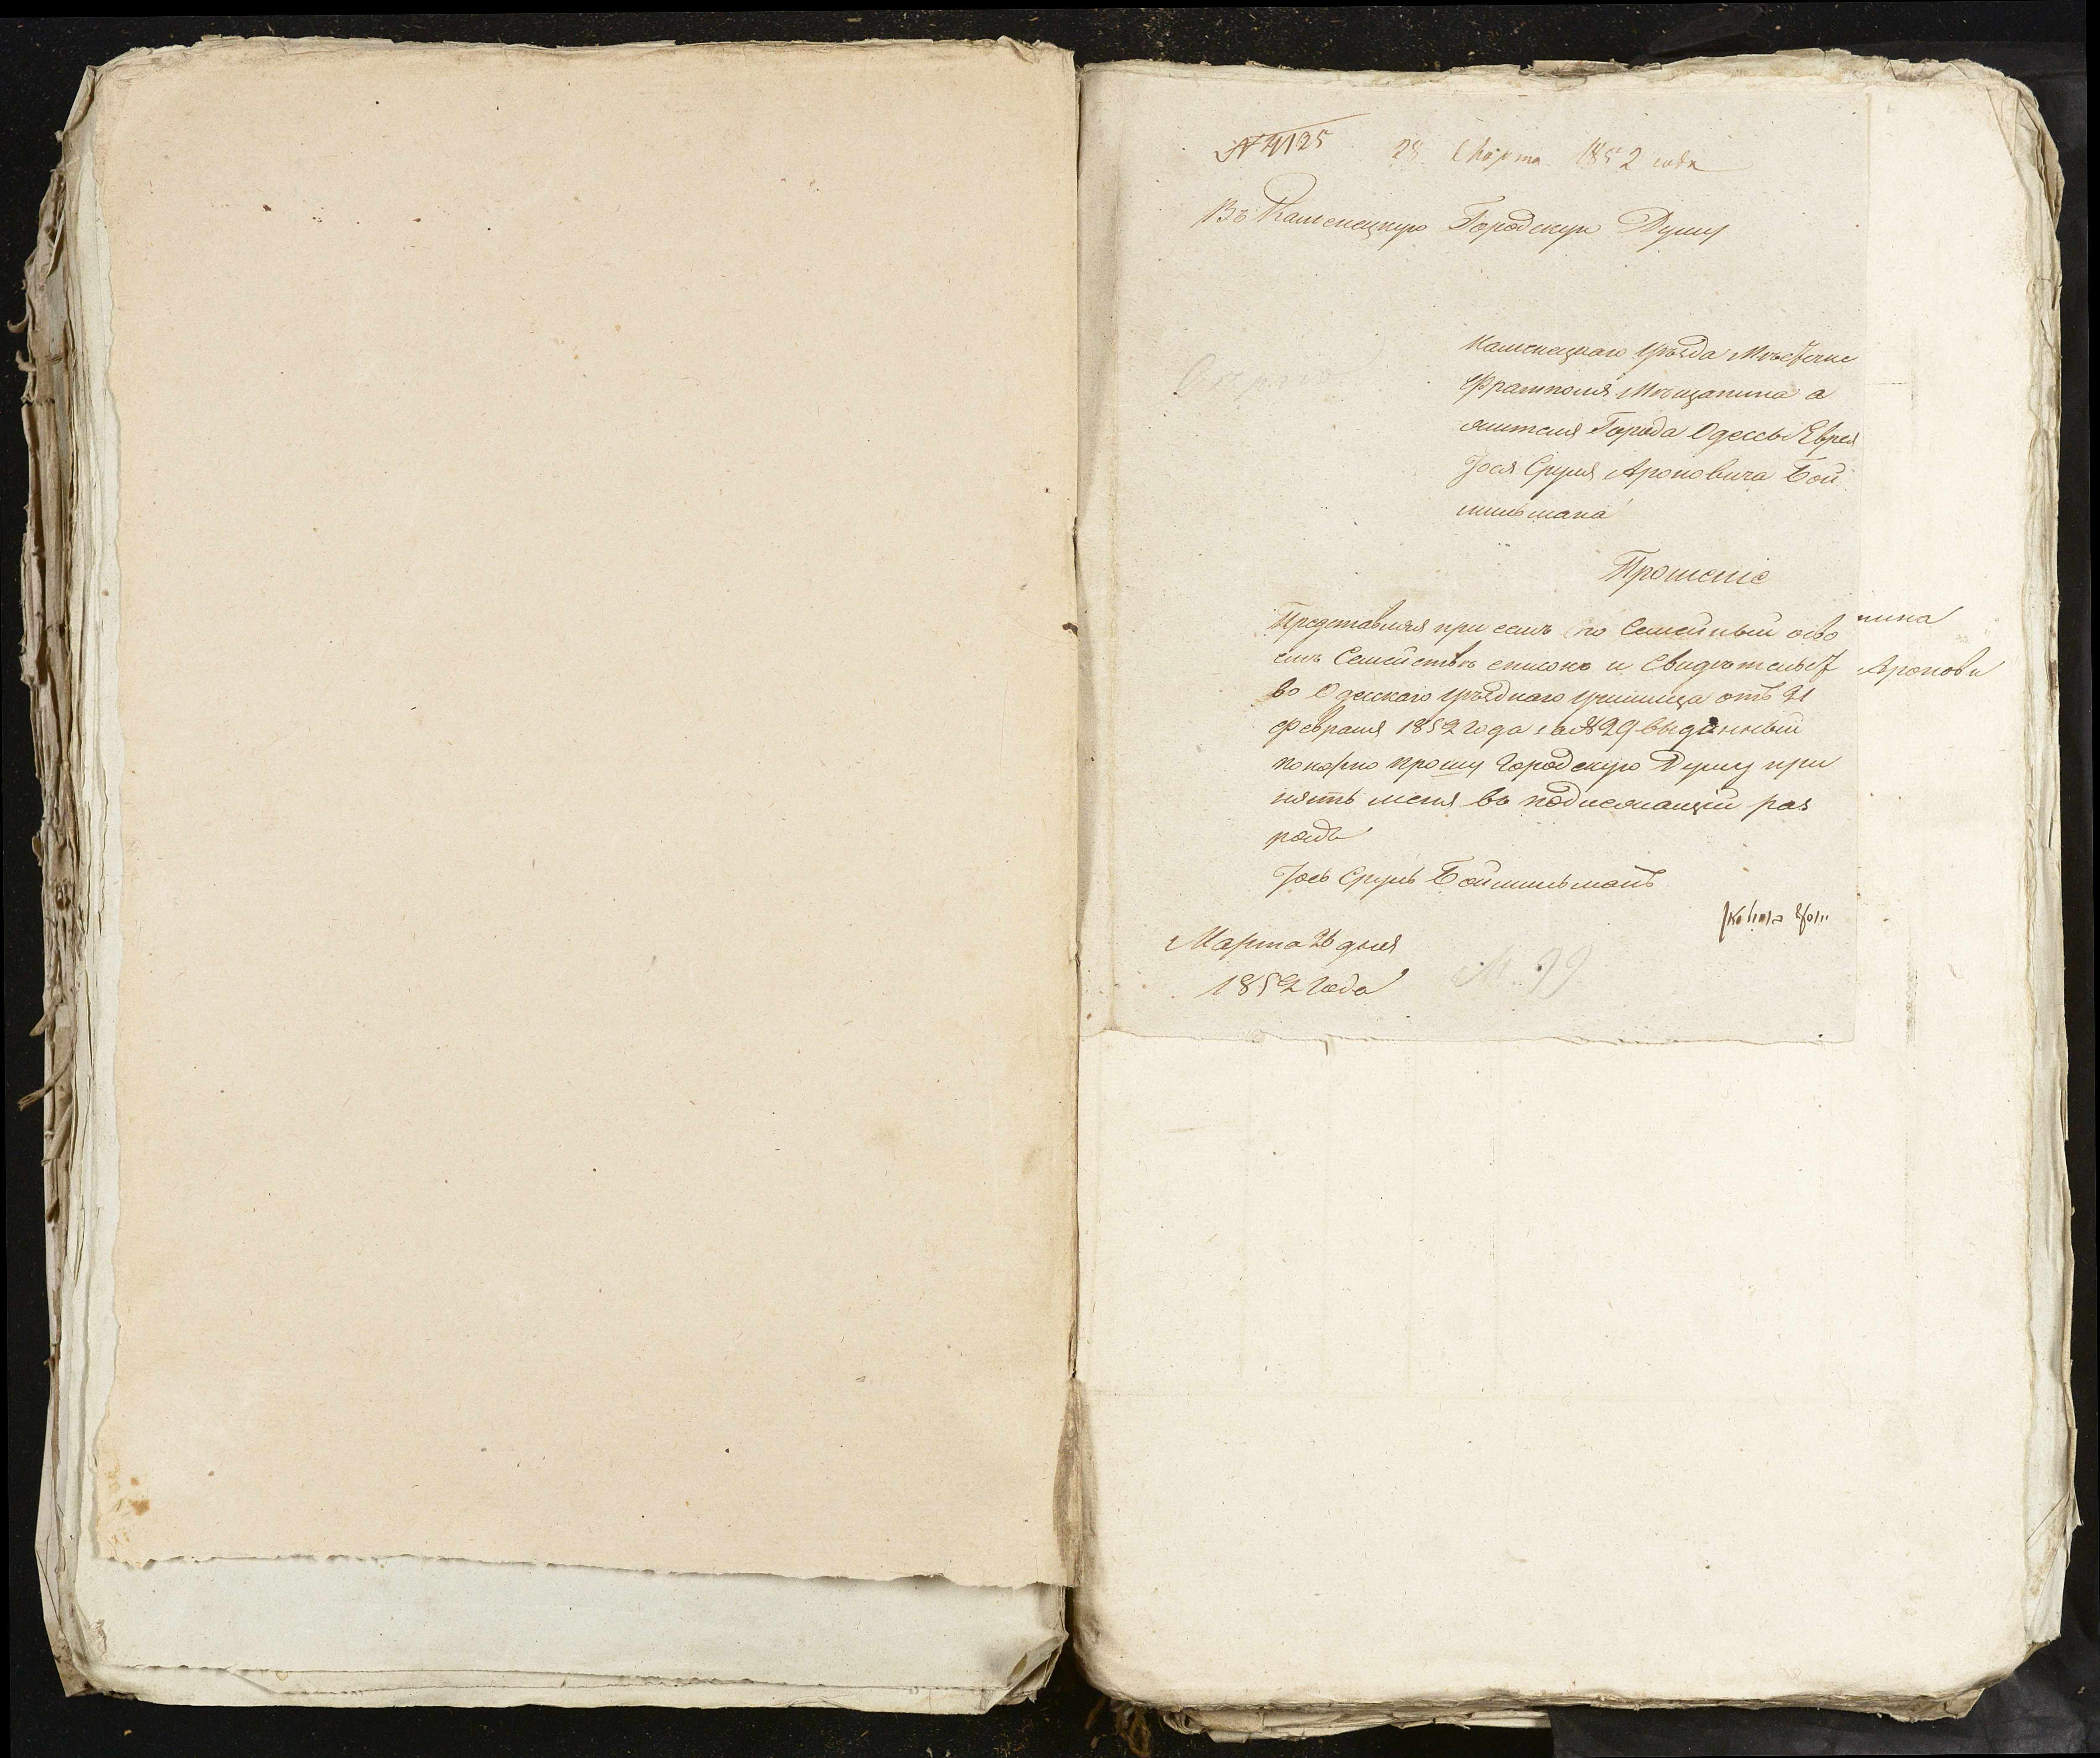 № 4125 28 Марта 1852 года
Въ Каменецкую Городскую Думу
Каменецкаго уѣзда Мѣстечка
Фрамполя Мѣщанина а
жителя Города Одессы Еврея
Іося Сруля Ароновича Бой
мильмана
Прошеніе
Представляя при семъ по Семейный осво
емъ Семействѣ списокъ и Свидѣтельст
во Одесскаго уѣзднаго училища отъ 21
февраля 1852 года за № 29 выданный
покорно прошу Городскую Думу при
нять меня въ подлежащій раз
рядъ
Іось Сруль Боймильманъ
Марта 26 дня
1852 года
№ 99
нина
Аронови